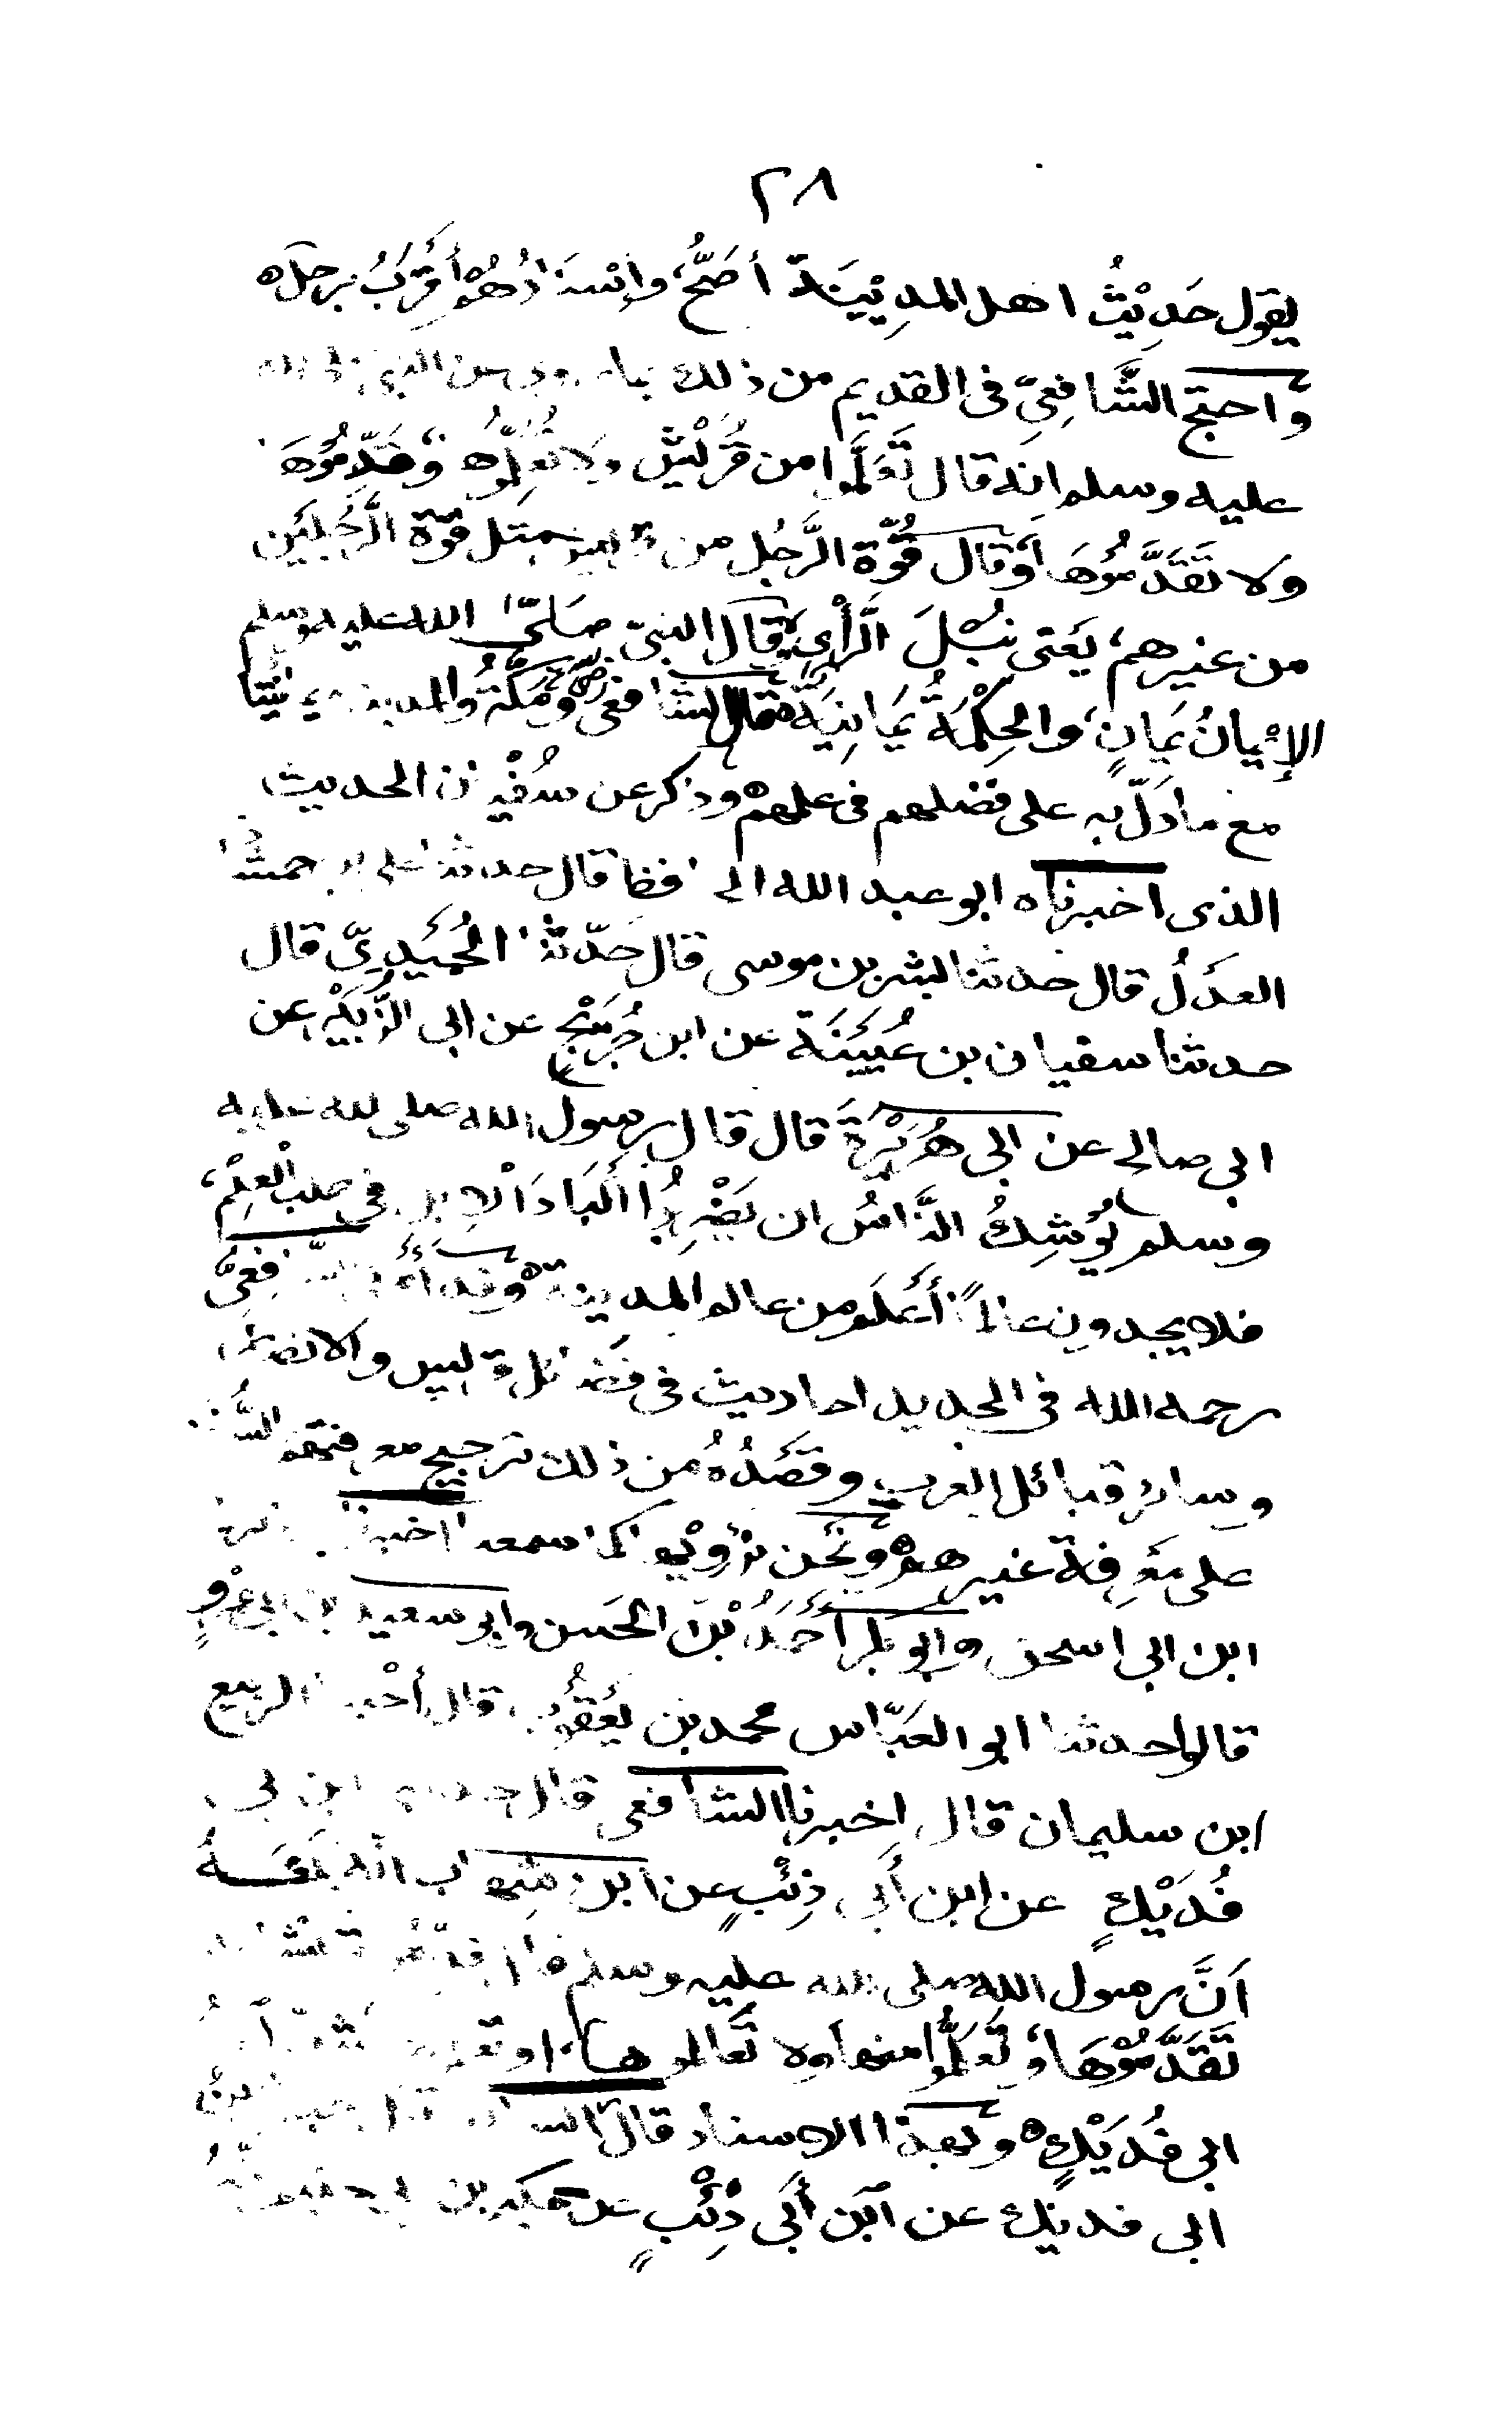 ٢٨
يقول حَدِيْثُ اهل المدِيْنَة أصَحُّ، وإسْنَادُهُمْ أقْرَبُ
واحتج الشَّافِعِيّ فى القديم من ذلك بما روى عن النبى
عليه وسلم انه قال تَعَلَّمُوا من قُرَيْشٍ ولا تُعَلِّمُوها وَقَدِّمُوْهَا
ولا تَقَدَّمُوْهَا وَقَال قُوَّة الرَّجُل من قريش مثل قوّة الرَّجُلَيْن
من غيرهم، يَعنى نُبْلَ الرَّأْىِ وقال النبىّ صَلىّ الله عليه وسلم
الإيْمانُ يَمانٍ، والحِكْمَةُ يَمَانِيَةٌ قال الشافعى وَمَكَّةُ والمدينة يمانيتا
مع ما دَلّ به على فضلهم فى علمهم وذكر عن سُفْيان الحديث
الذى اخبرناه ابو عبد الله الحافظ قال حدثنا على بن حمشاذ
العدْلُ قال حدثنا بشر بن موسى قال حَدّثنا الحُمَيْدِىّ قال
حدثنا سفيان بن عُيَيْنَة عن ابن جُرَيْجٍ عن ابى الزُّبَيْرِ عن
ابى صالح عن ابى هُرَيْرَةَ قال قال رسول الله صلى الله عليه
وسلم يُوْشِكُ النَّاسُ ان يَضْرِبُوا أكْبَادَ الْإِبِل فى طلب الْعِلْمِ،
فلا يجدون عالمًا أعْلَم من عالم المدينة وقد الشَّافِعِىُّ
رحمه الله فى الجديد احاديث فى فضائل قريش والانصار
وسائر قبائل العرب وقَصْدُهُ من ذلك ترجيح معرفتهم السُّنن
على مَعْرِفة غيرهم ونَحْن نَرْوِيْها كما سمعنا اخبرنا
ابن ابى اسحق وابو بكر أحْمَدُ بْنُ الحَسَن وابو سعيد بن ابى عَمْرٍو
قالوا حدثنا ابو العَبّاس محمد بن يَعْقُوب قال أخْبرنا الربيع
ابن سليمان قال اخبرنا الشافعى قال حدثنى ابن ابى
فُدَيْكٍ عن ابن أَبى ذِئْبٍ عن ابن شهاب انّه بَلَغَهُ
أَنَّ رسول الله صلى الله عليه وسلم قال قدّموا قريشا ولا
تَقَدَّمُوْهَا، وتَعَلَّمُوا منها ولا تُعَالموها، او تعلموها
ابى فُدَيْكٍ وبهذا الاسناد قال الشافعى ابن
ابى فديك عن ابْن أَبى ذِئْبٍ عن حكيم بن ابى حكيم